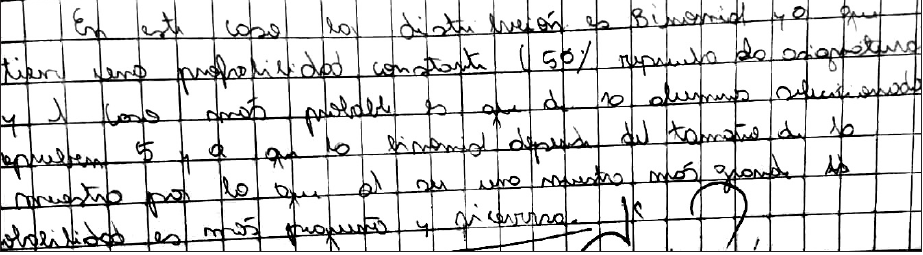 En este caso la distribución es Binomial ya que
tiene una probabilidad constante (50% aprueba la asignatura
y el caso más probable es que de 10 alumnos seleccionados
aprueben 5, ya que la binomial depende del tamaño de la
muestra por lo que al ser una muestra más grande la
probabilidad es más pequeña y viceversa.